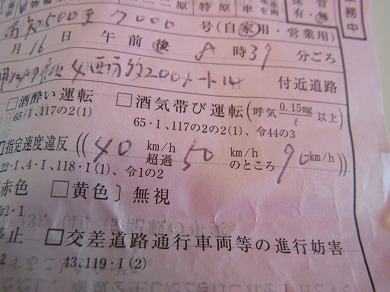 原 特 原 車 保 有 無 務中
500 7000 号(自家用・営業用)
月16日 午前後 8時37分ごろ
200メートル 付近道路
□酒酔い運転 □酒気帯び運転(呼気0.15mg/ℓ以上)
65・I、117の2(1) 65・I、117の2の2(1)、令44の3
指定速度違反((40km/h超過 50km/hのところ 90km/h))
22・1、4・I、118・I(1)、令1の2
赤色 □黄色〕無視
止 □交差道路通行車両等の進行妨害
43、119・I(2)